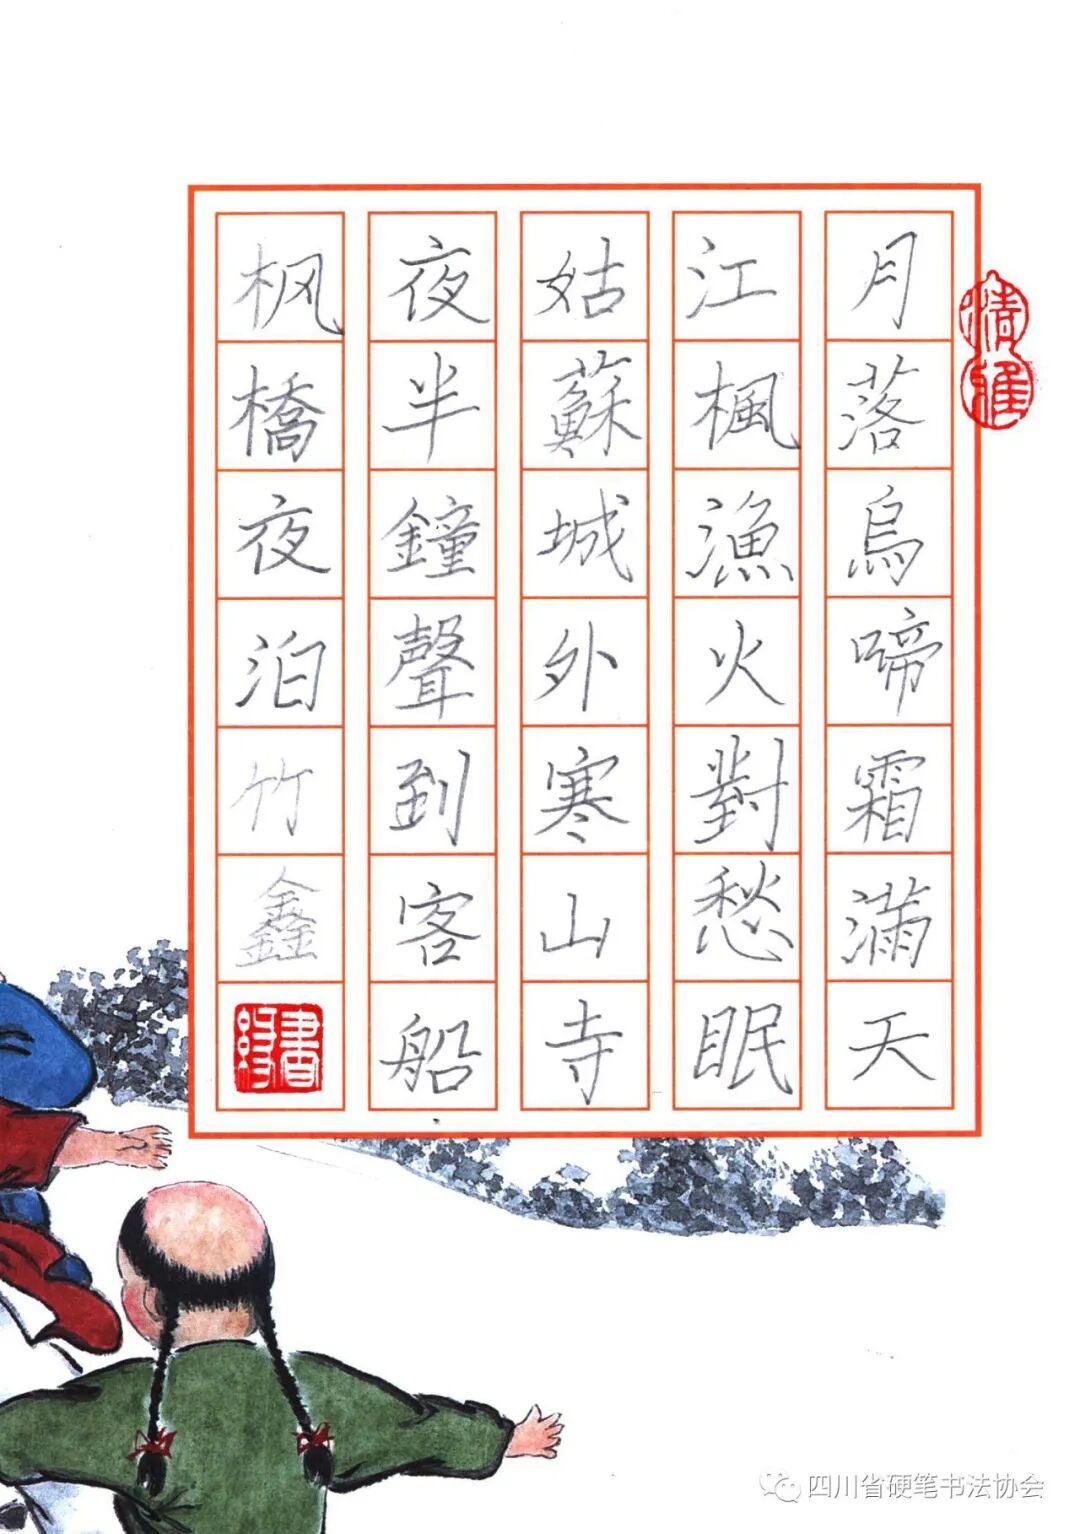 月落烏啼霜滿天
江楓漁火對愁眠
姑蘇城外寒山寺
夜半鐘聲到客船
枫橋夜泊竹鑫
四川省硬笔书法协会